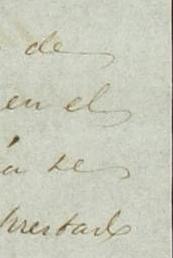 de
en el
á se
prestado